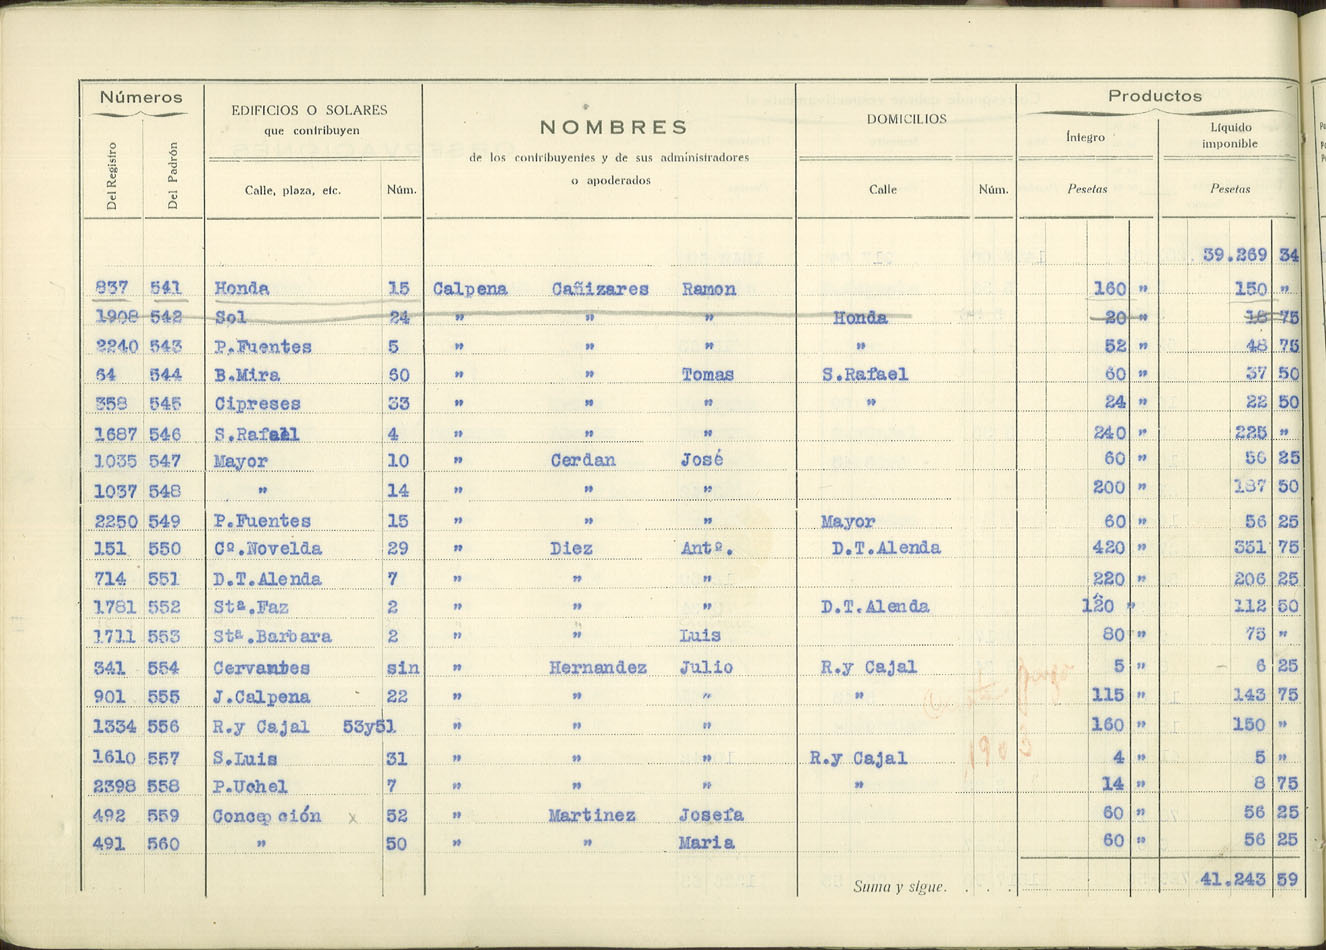 Números
EDIFICIOS O SOLARES
que contribuyen
NOMBRES
de los contribuyentes y de sus administradores
o apoderados
DOMICILIOS
Productos
Íntegro
Líquido
imponible
Del Registro
Del Padrón
Calle, plaza, etc.
Núm.
Calle
Núm.
Pesetas
Pesetas
39.269 34
837 541 Honda 15 Calpena Cañizares Ramon 160 " 150 "
1908 542 Sol 24 " " " Honda 20 " 18 75
2240 543 P.Fuentes 5 " " " " 52 " 48 75
64 544 B.Mira 60 " " Tomas S.Rafael 60 " 37 50
358 545 Cipreses 33 " " " " 24 " 22 50
1687 546 S.Rafaal 4 " " " 240 " 225 "
1035 547 Mayor 10 " Cerdan José 60 " 56 25
1037 548 " 14 " " " 200 " 187 50
2250 549 P.Fuentes 15 " " " Mayor 60 " 56 25
151 550 Cº.Novelda 29 " Diez Antº. D.T.Alenda 420 " 331 75
714 551 D.T.Alenda 7 " " " 220 " 206 25
1781 552 Stª.Faz 2 " " " D.T.Alenda 120 " 112 50
1711 553 Stª.Barbara 2 " " Luis 80 " 75 "
341 554 Cervantes sin " Hernandez Julio R.y Cajal 5 " 6 25
901 555 J.Calpena 22 " " " " 115 " 143 75
1334 556 R.y Cajal 53y51 " " " 160 " 150 "
1610 557 S.Luis 31 " " " R.y Cajal 4 " 5 "
2398 558 P.Uchel 7 " " " " 14 " 8 75
492 559 Concepción x 52 " Martinez Josefa 60 " 56 25
491 560 " 50 " " Maria 60 " 56 25
Suma y sigue. . . . . 41.243 59